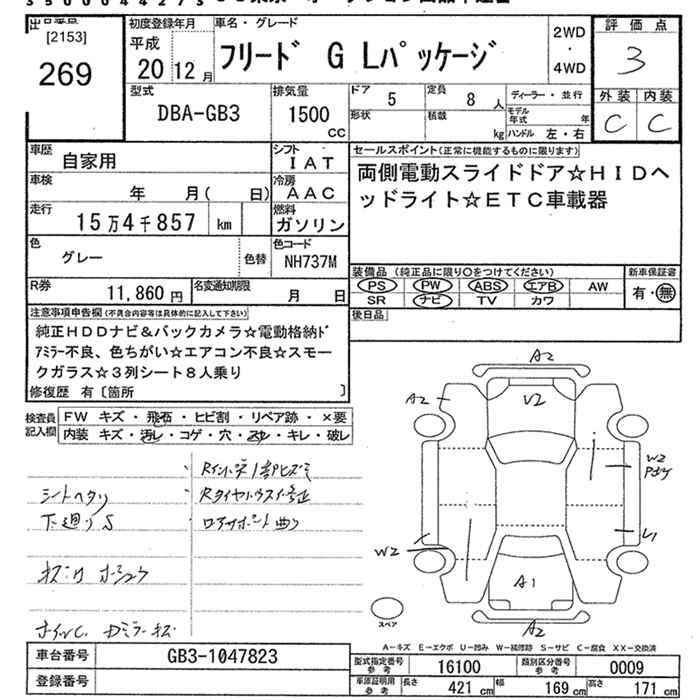 [2153]
269
初度登録年月
平成
20 12 月
車名・グレード
フリード G Lパッケージ
2WD
・
4WD
評価点
3
外装 内装
C C
型式
DBA-GB3
排気量
1500
CC
ドア 5
定員 8 人
形状
積載 kg
ディーラー・並行
モデル年式 年
ハンドル 左・右
車歴
自家用
シフト
IAT
車検
年 月( 日)
冷房
AAC
走行
15万4千857 km
燃料
ガソリン
色
グレー
色替
色コード
NH737M
R券
11,860 円
名変通知期限
月 日
セールスポイント(正常に機能するものに限ります)
両側電動スライドドア☆HIDヘ
ッドライト☆ETC車載器
装備品 (純正品に限り○をつけてください)
PS PW ABS エアB AW
SR ナビ TV カワ
新車保証書
有・無
後日品
注意事項申告欄(不具合内容等は具体的に記入して下さい)
純正HDDナビ&バックカメラ☆電動格納ド
アミラー不良、色ちがい☆エアコン不良☆スモー
クガラス☆3列シート8人乗り
修復歴 有〔箇所 〕
検査員
記入欄
FW キズ・飛石・ヒビ割・リペア跡・×要
内装 キズ・汚レ・コゲ・穴・スレ・キレ・破レ
シートヘタリ
下廻りS
A2
A2
V2
W2
W2
A1
A2
スペア
A-キズ E-エクボ U-凹み W-補修跡 S-サビ C-腐食 XX-交換済
車台番号
GB3-1047823
登録番号
型式指定番号
参考
16100
類別区分番号
参考
0009
車庫証明用
参考
長さ 421 cm
幅 169 cm
高さ 171 cm